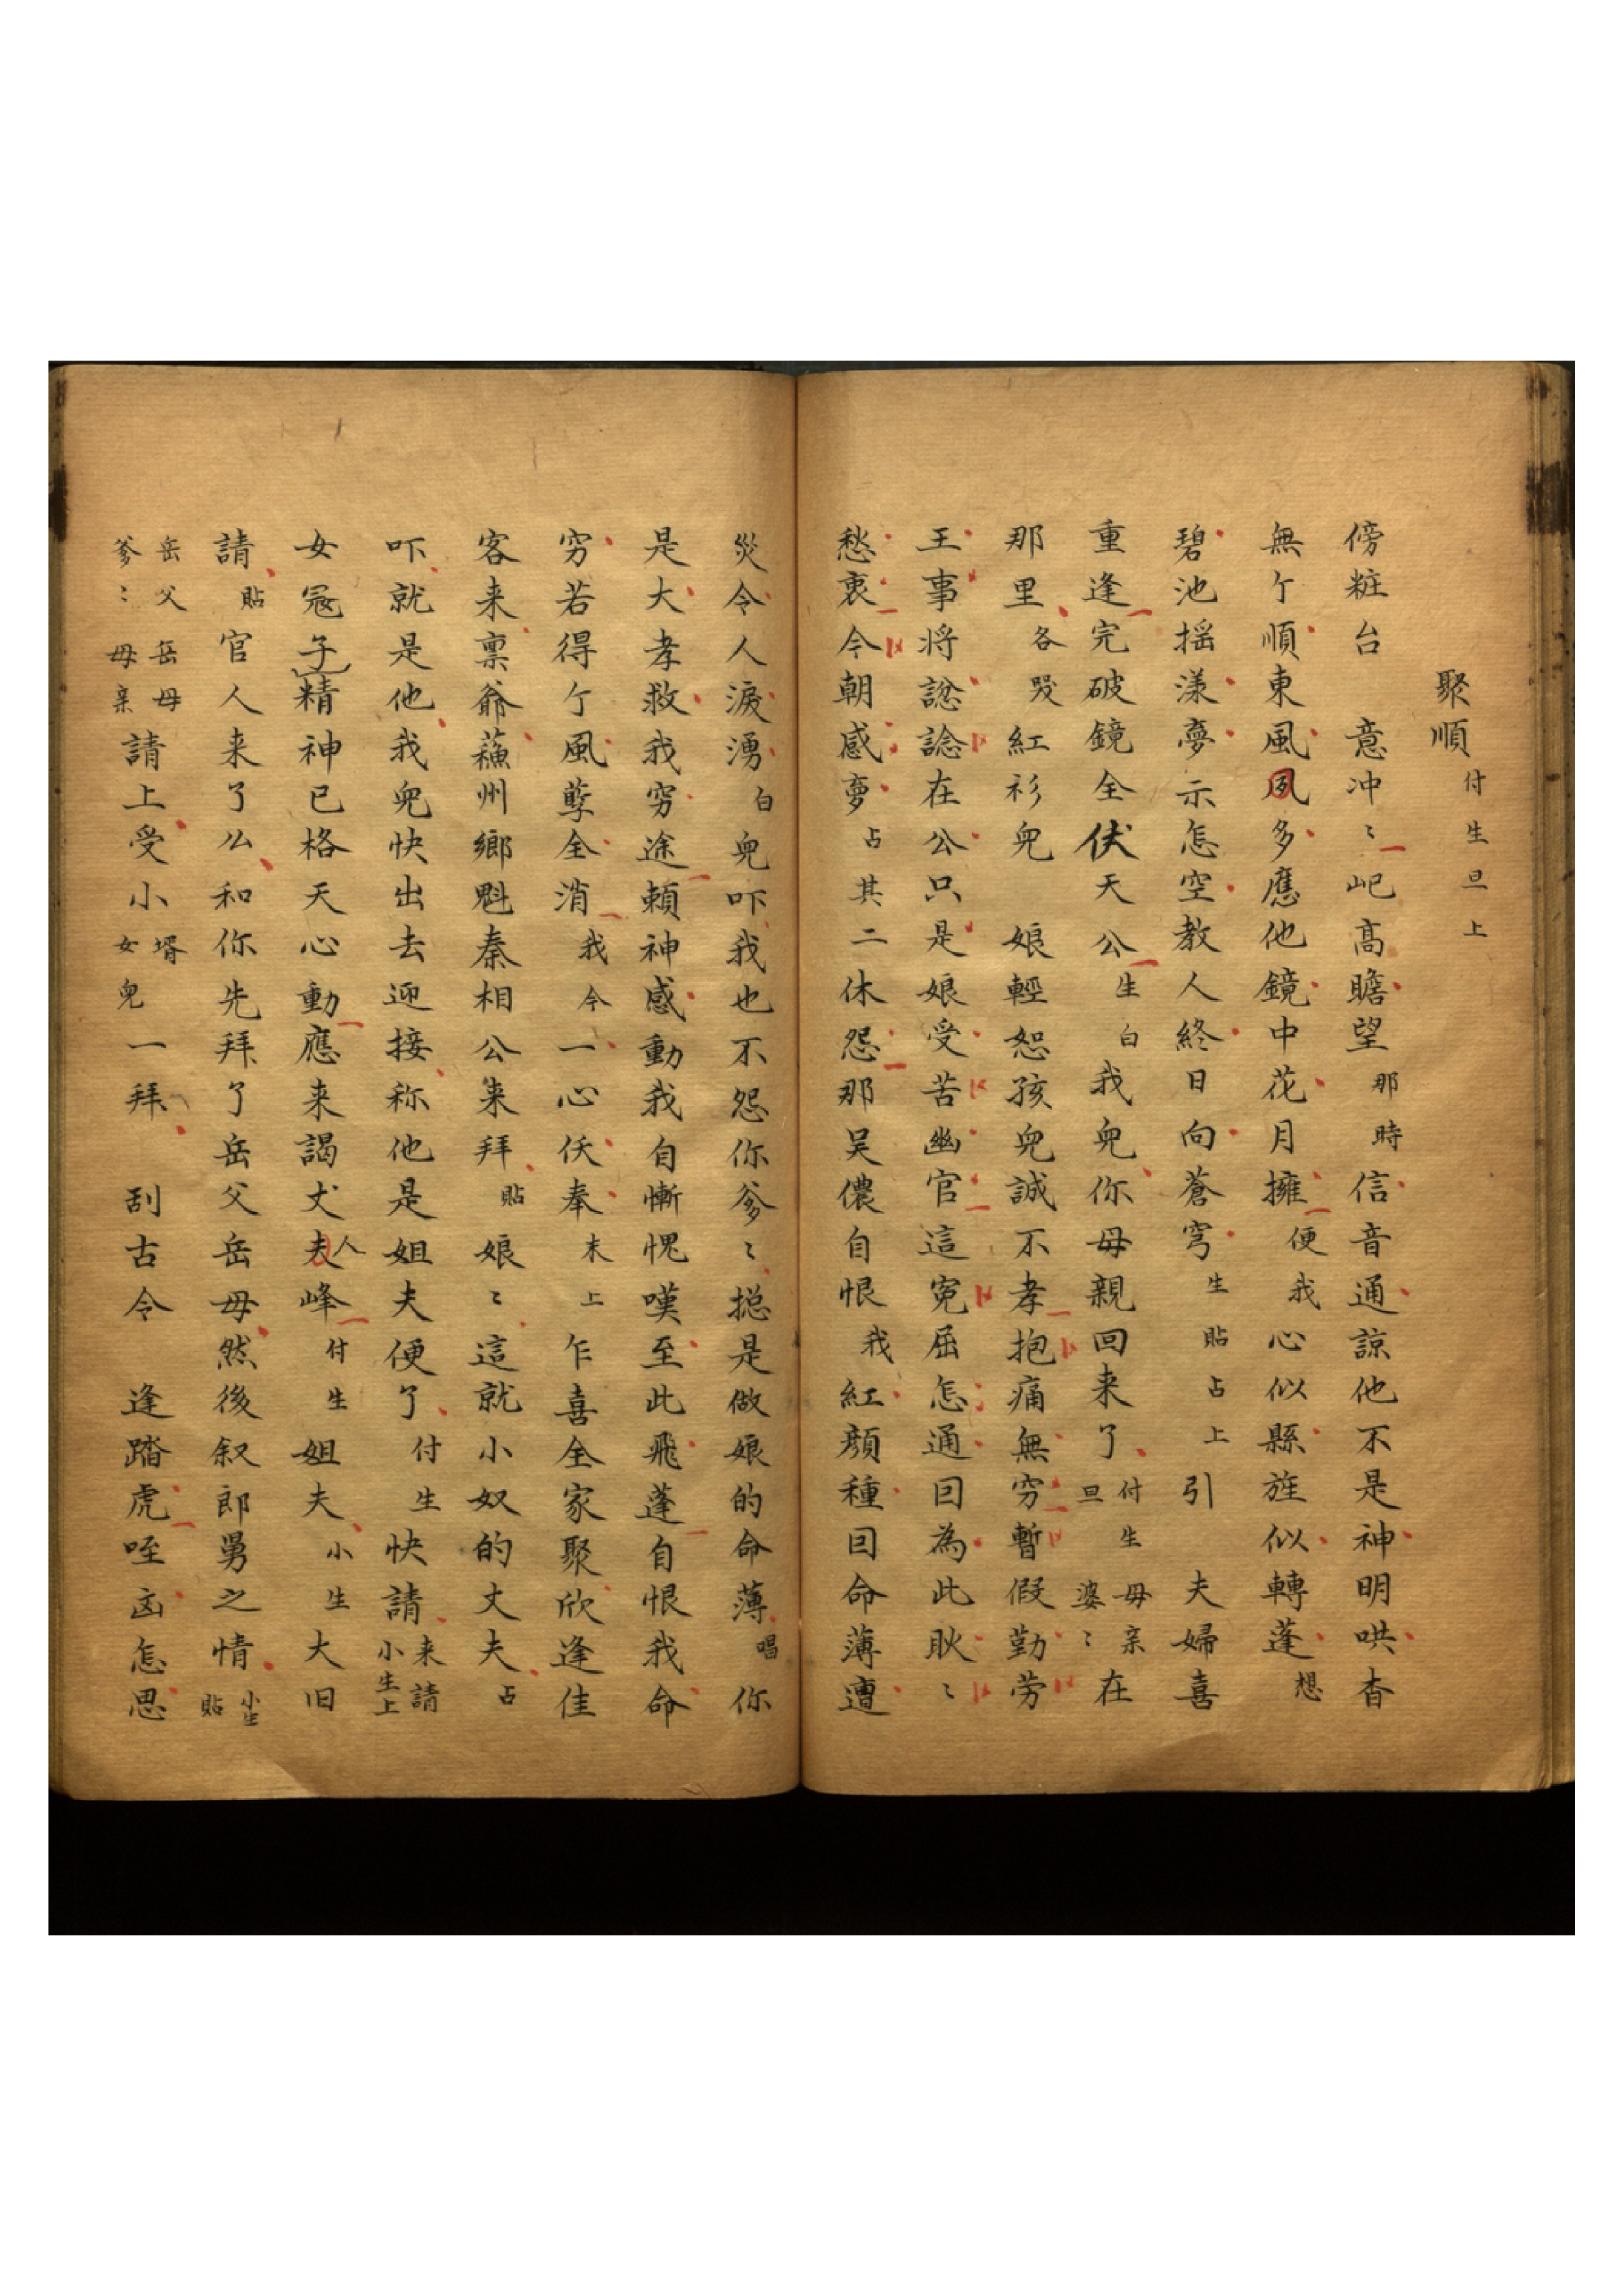 聚順 付生旦上
傍粧台 意冲〻屺高瞻望那時信音通諒他不是神明哄杳
無亇順東風夙多應他鏡中花月擁便我心似縣旌似轉蓬想
碧池搖漾夢示怎空教人終日向蒼穹生貼占上引 夫婦喜
重逢完破鏡全伏天公生白我兒你母親回来了付生旦母亲婆〻在
那里各哭紅衫兒 娘輕恕孩兒誠不孝抱痛無穷暫假勤劳
王事将諗在公只是娘受苦幽官這寃屈怎通囙為此耿〻
愁衷今朝感夢占其二休怨那吴儂自恨我紅顔種囙命薄遭
災令人淚湧白兒吓我也不怨你爹〻搃是做娘的命薄唱你
是大孝救我穷途頼神感動我自慚愧嘆至此飛蓬自恨我命
穷若得亇風孽全消我今一心仸奉末上乍喜全家聚欣逢佳
客来禀爺蘓州鄉魁秦相公来拜貼娘〻這就小奴的丈夫占
吓就是他我兒快出去迎接称他是姐夫便了付生快請来請小生上
女冠子精神已格天心動應来謁丈夫人峰付生姐夫小生大旧
請貼官人来了么和你先拜了岳父岳母然後叙郎舅之情小生貼
岳父岳母爹〻母亲請上受小壻女兒一拜 刮古令 逢踏虎咥㐫怎思